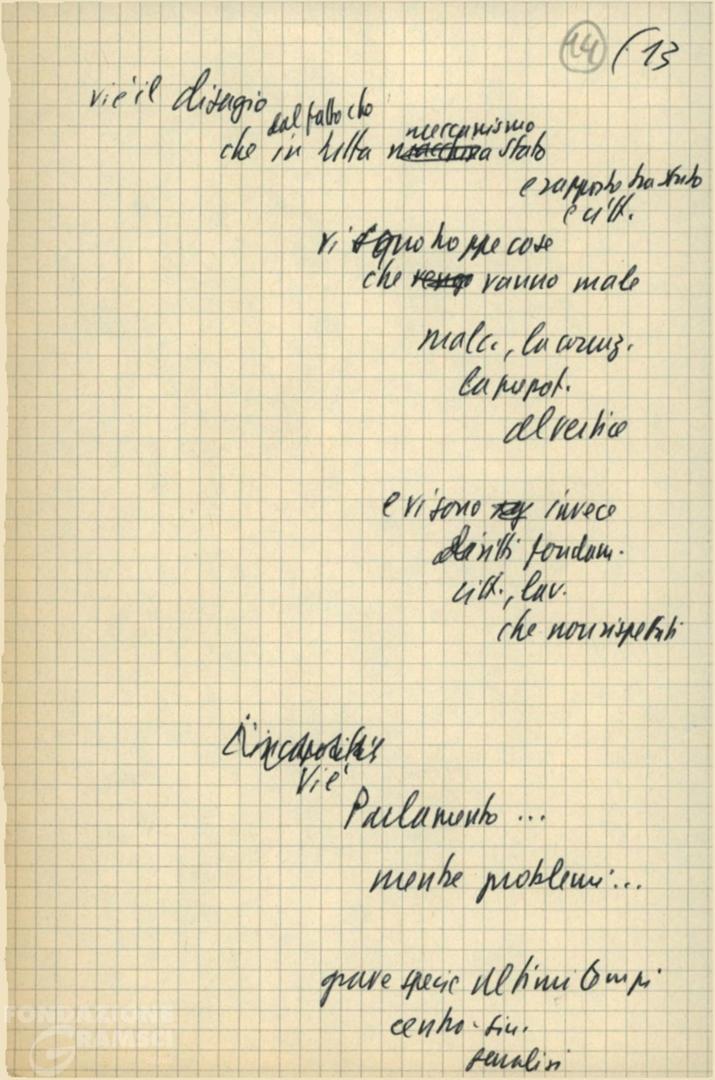 14 (13
vi è il disagio
dal fatto che
che in tutta macchina stato
meccanismo
e rapporto tra stato
e citt.
vi sono troppe cose
che vengo vanno male
malc., la corruz.
la prepot.
al vertice
e vi sono invece
diritti fondam.
citt., lav.
che non rispettati
Vi è
Parlamento ...
mentre problemi ...
grave specie ultimi tempi
centro-sin.
FONDAZIONE
GRAMSCI